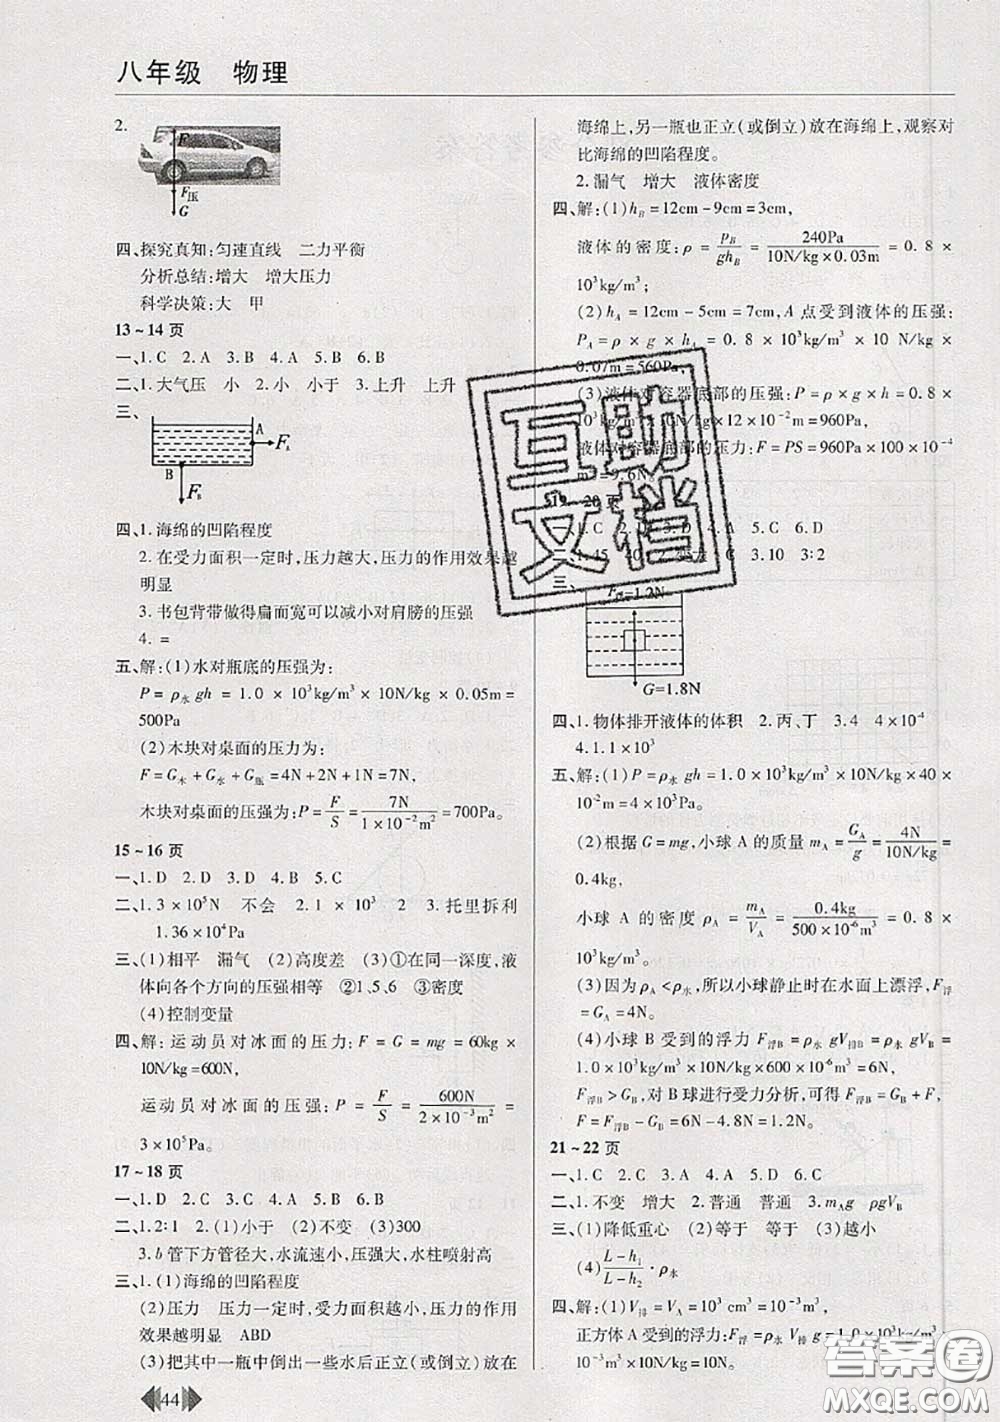 八年级 物理
2.
F
F压
G
四、探究真知:匀速直线 二力平衡
分析总结:增大 增大压力
科学决策:大 甲
13~14 页
一、1. C 2. A 3. B 4. B 5. B 6. B
二、1. 大气压 小 2. 小 小于 3. 上升 上升
三、
A
F_A
B
F_B
四、1. 海绵的凹陷程度
2. 在受力面积一定时,压力越大,压力的作用效果越
明显
3. 书包背带做得扁而宽可以减小对肩膀的压强
4. =
五、解:(1)水对瓶底的压强为:
P = ρ水 gh = 1.0 × 10³kg/m³ × 10N/kg × 0.05m =
500Pa
(2)木块对桌面的压力为:
F = G木 + G水 + G瓶 = 4N + 2N + 1N = 7N,
木块对桌面的压强为:P = F/S = 7N/(1 × 10⁻²m²) = 700Pa。
15~16 页
一、1. D 2. D 3. B 4. B 5. C
二、1. 3 × 10⁵N 不会 2. 1 × 10³ 2 3. 托里拆利
1.36 × 10⁴Pa
三、(1)相平 漏气 (2)高度差 (3)①在同一深度,液
体向各个方向的压强相等 ②1、5、6 ③密度
(4)控制变量
四、解:运动员对冰面的压力:F = G = mg = 60kg ×
10N/kg = 600N,
运动员对冰面的压强:P = F/S = 600N/(2 × 10⁻³m²) =
3 × 10⁵Pa。
17~18 页
一、1. D 2. C 3. C 4. B 5. C 6. B
二、1. 2∶1 2. (1)小于 (2)不变 (3)300
3. b 管下方管径大,水流速小,压强大,水柱喷射高
三、1. (1)海绵的凹陷程度
(2)压力 压力一定时,受力面积越小,压力的作用
效果越明显 ABD
(3)把其中一瓶中倒出一些水后正立(或倒立)放在
44
海绵上,另一瓶也正立(或倒立)放在海绵上,观察对
比海绵的凹陷程度。
2. 漏气 增大 液体密度
四、解:(1)h_B = 12cm - 9cm = 3cm,
液体的密度:ρ = p_B/(gh_B) = 240Pa/(10N/kg × 0.03m) = 0.8 ×
10³kg/m³;
(2)h_A = 12cm - 5cm = 7cm,A 点受到液体的压强:
P_A = ρ × g × h_A = 0.8 × 10³kg/m³ × 10 N/kg ×
0.07m = 560Pa;
(3)液体对容器底部的压强:P = ρ × g × h = 0.8 ×
10³kg/m³ × 10N/kg × 12 × 10⁻²m = 960Pa,
液体对容器底部的压力:F = PS = 960Pa × 100 × 10⁻⁴
m² = 9.6N。
19~20 页
一、1. C 4. A 5. C 6. D
二、1. 45 C 3. 10 3∶2
三、
F浮=1.2N
G=1.8N
四、1. 物体排开液体的体积 2. 丙、丁 3. 4 4 × 10⁻⁴
4. 1.1 × 10³
五、解:(1)P = ρ水 gh = 1.0 × 10³kg/m³ × 10N/kg × 40 ×
10⁻²m = 4 × 10³Pa。
(2)根据 G = mg,小球 A 的质量 m_A = G_A/g = 4N/(10N/kg) =
0.4kg,
小球 A 的密度 ρ_A = m_A/V_A = 0.4kg/(500 × 10⁻⁶m³) = 0.8 ×
10³kg/m³。
(3)因为 ρ_A < ρ水,所以小球静止时在水面上漂浮,F浮
= G_A = 4N。
(4)小球 B 受到的浮力 F浮B = ρ水 gV排B = ρ水 gV_B =
1.0 × 10³kg/m³ × 10N/kg × 600 × 10⁻⁶m³ = 6N,
F浮B > G_B,对 B 球进行受力分析,可得 F浮B = G_B + F,
F = F浮B - G_B = 6N - 4.8N = 1.2N。
21~22 页
一、1. C 2. C 3. A 4. D 5. C
二、1. 不变 增大 2. 普通 普通 3. m_A g ρgV_B
三、(1)降低重心 (2)等于 等于 (3)越小
(4)(L - h₁)/(L - h₂) · ρ水
四、解:(1)V排 = V_A = 10³ cm³ = 10⁻³m³,
正方体 A 受到的浮力:F浮 = ρ水 V排 g = 10³kg/m³ ×
10⁻³m³ × 10N/kg = 10N。
互助
文档
答案圈
MXQE.COM